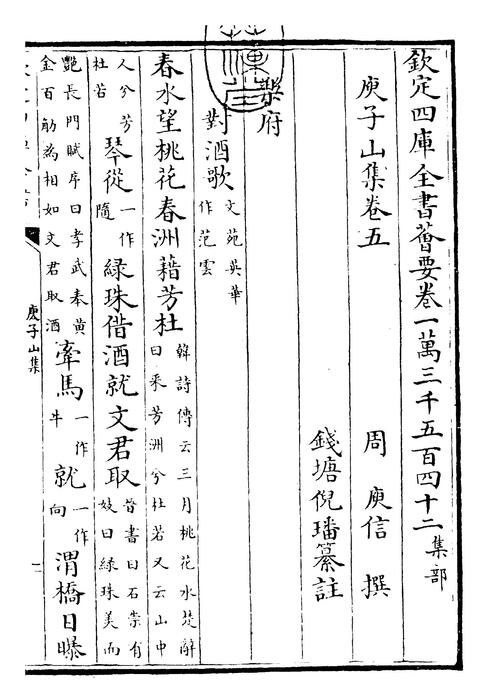 欽定四庫全書薈要卷一萬三千五百四十二集部
庾子山集卷五 周 庾信 撰
錢塘倪璠纂註
樂府
對酒歌文苑英華作范雲
春水望桃花春洲藉芳杜韓詩傳云三月桃花水楚辭曰采芳洲兮杜若又云山中
人兮芳杜若琴從一作隨綠珠借酒就文君取晉書曰石崇有妓曰綠珠美而
艷長門賦序曰孝武奉黃金百觔為相如文君取酒牽馬一作牛就一作向渭橋日曝
庾子山集
一